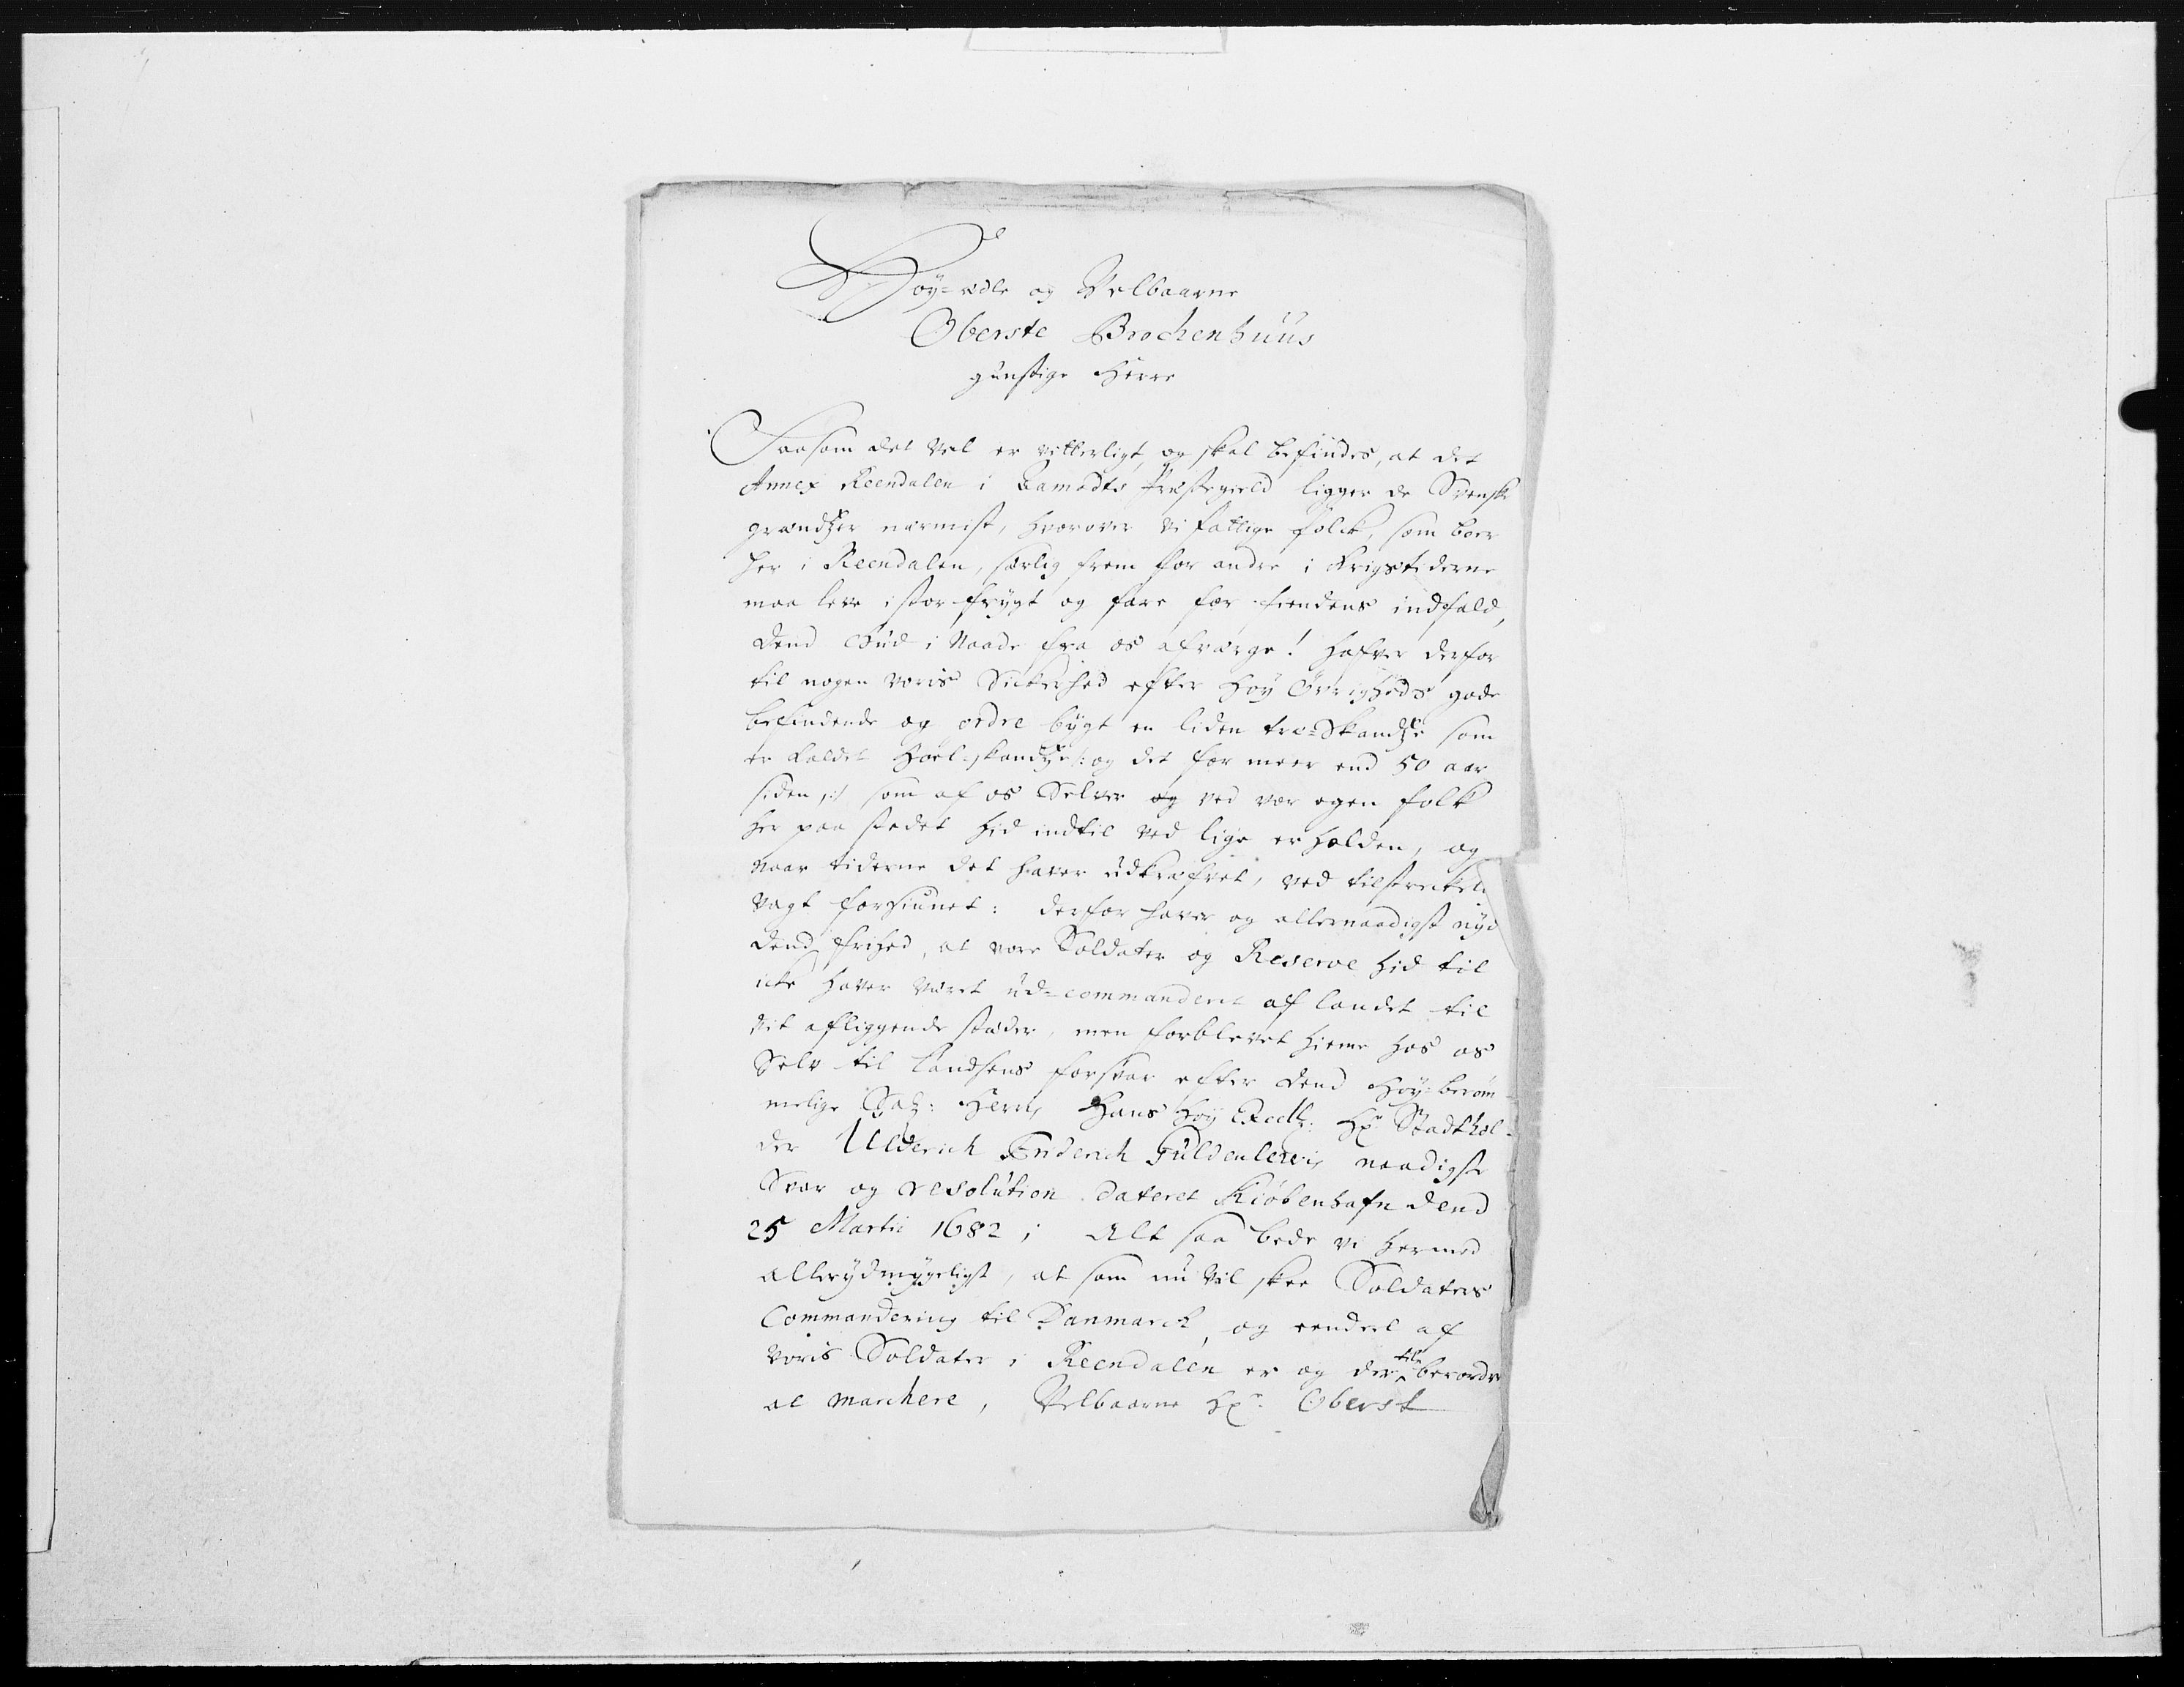 Høy-ædle og Velbaarne
Oberste Brochenhuus
gunstige Herre
Saasom det vel er vitterligt, og skal befindes, at det
Annex Reendalen i Aamodts Præstegield ligger de Svenske
grændtzer nærmist, hvorover vi fattige folck, som boer
her i Reendalen, særlig frem for andre i Krigstiderne
maa leve i stor frygt og fare for fiendens indfald,
dend Gud i Naade fra os afværge! hafver derfor
til nogen voris Sickerhed efter Høy Øvrigheds gode
befindende og ordre bygt en liden træ-Skandtze som
er kaldet Hoel-skandtze /: og det for meer end 50 aar
siden :/ som af os Selver og ved vor egen folk
her paa stedet hid indtil ved lige er holden, og
naar tiderne det haver udkræfvet, ved tilstreckeli
vagt forsiunet: derfor haver og allernaadigst nyd
dend frihed, at vore Soldater og Reserve hid til
icke haver været ud-commanderet af landet til
vit afliggende stæder, men forblevet hieme hos os
Selv til landsens forsvar efter dend Høy-beröm-
melige Sal: Herris Hans Høy Excell: Hr Stadthol-
der Ulderich Friderich Guldenlewis naadigste
Svar og resolution dateret Kiöbenhafn dend
25 Martii 1682; Alt saa bede vi hermed
allerydmygeligst, at som nu vil skee Soldaters
Commandering til Danmarck, og eendeel af
voris Soldater i Reendalen er og der til beordr
at marchere, Velbaarne Hr Oberst